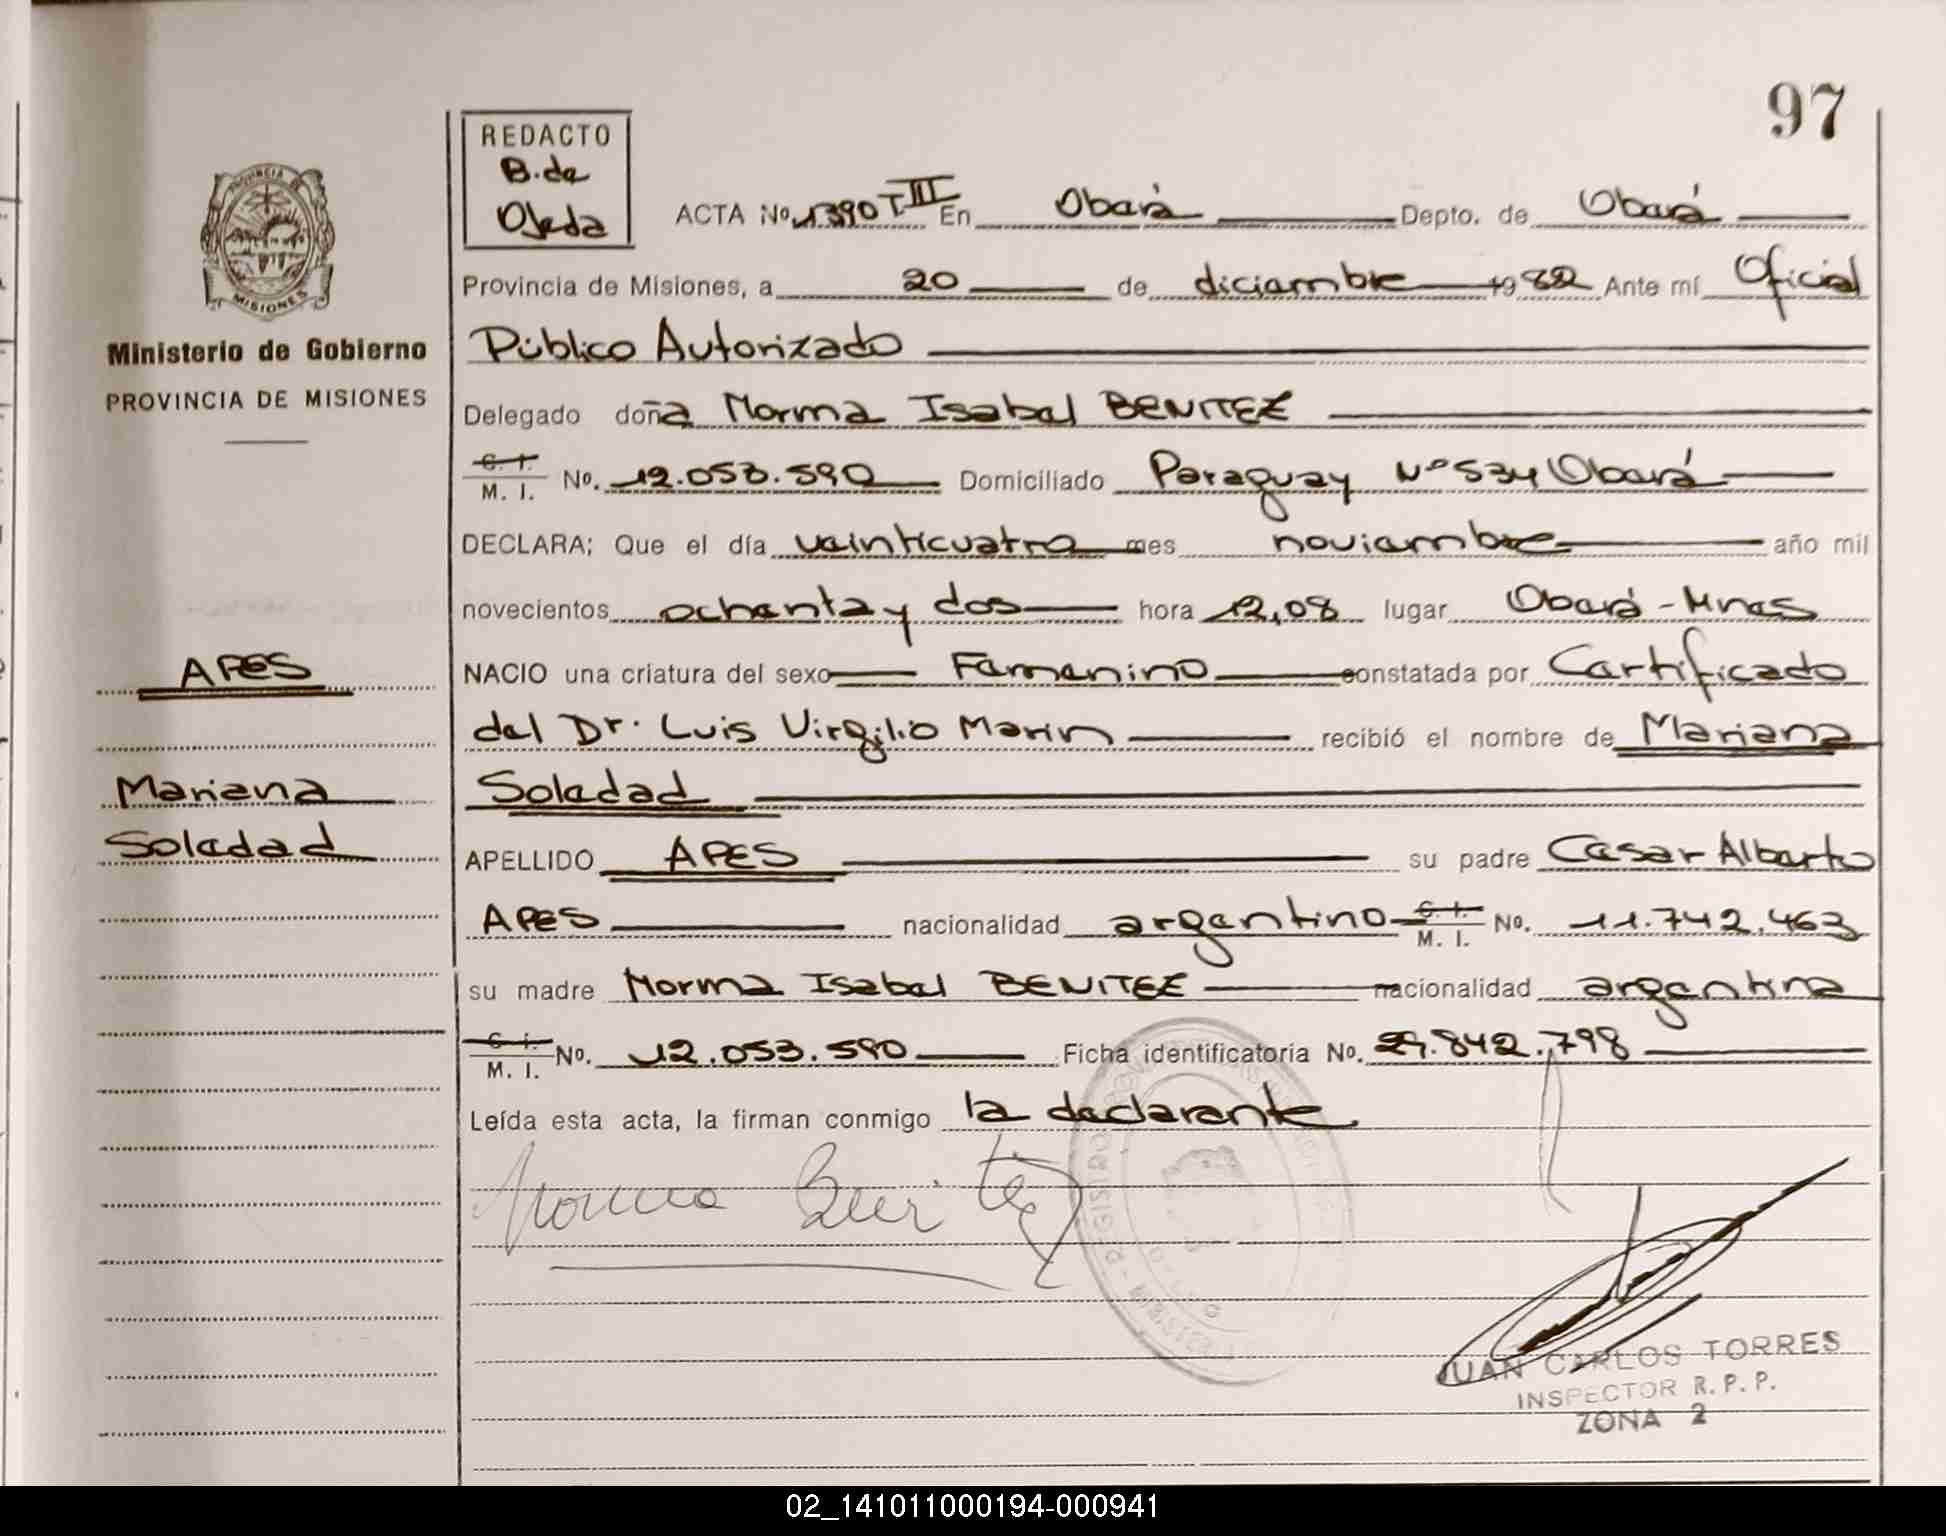 97
REDACTO
B. de
Ojeda
ACTA No. 1390 T. III En Oberá Depto. de Oberá
Provincia de Misiones, a 20 de diciembre 1982 Ante mí Oficial
Público Autorizado
Delegado doña Norma Isabel BENITEZ
C. I.
M. I. No. 12.053.590 Domiciliado Paraguay Nº 534 Oberá
DECLARA; Que el día veinticuatro mes noviembre año mil
novecientos ochenta y dos hora 12,08 lugar Oberá - Mnes
NACIO una criatura del sexo Femenino constatada por Certificado
del Dr. Luis Virgilio Marin recibió el nombre de Mariana
Soledad
APELLIDO APES su padre Cesar Alberto
APES nacionalidad argentino C. I.
M. I. No. 11.742.463
su madre Norma Isabel BENITEZ nacionalidad argentina
C. I.
M. I. No. 12.053.590 Ficha identificatoria No. 29.842.798
Leída esta acta, la firman conmigo la declarante
Norma Benitez
JUAN CARLOS TORRES
INSPECTOR R. P. P.
ZONA 2
PROVINCIA DE
MISIONES
Ministerio de Gobierno
PROVINCIA DE MISIONES
APES
Mariana
Soledad
02_141011000194-000941